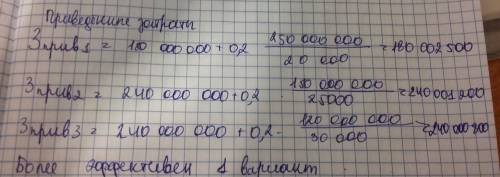 Приведенные затраты
Зприв1 = 180 000 000 + 0,2 250 000 000 / 20 000 = 180 002 500
Зприв2 = 240 000 000 + 0,2 150 000 000 / 25000 = 240 001 200
Зприв3 = 240 000 000 + 0,2 · 120 000 000 / 30 000 = 240 000 800
Более эффективен 1 вариант